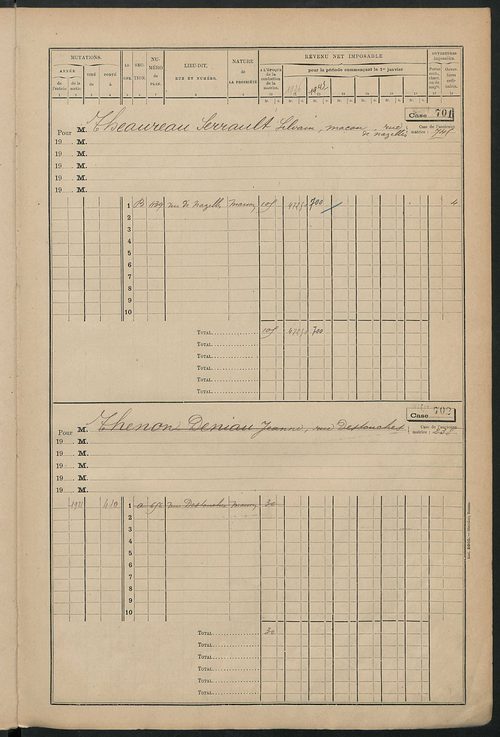 MUTATIONS.
ANNÉE
de l'entrée
de la sortie
TIRÉ de
PORTÉ à
SEC-TION.
NU-MÉRO de PLAN.
LIEU-DIT,
RUE ET NUMÉRO.
NATURE
de
LA PROPRIÉTÉ
REVENU NET IMPOSABLE
A L'ÉPOQUE de la confection de la matrice.
pour la période commençant le 1er janvier
1942
OUVERTURES imposables.
Case 701
Pour M. Theaureau Serrault Silvain, maçon, rue de Nazelles
Case de l'ancienne matrice
19 M.
19 M.
19 M.
19 M.
1 B rue de Nazelles Maison 700 4
2
3
4
5
6
7
8
9
10
TOTAL 700
TOTAL
TOTAL
TOTAL
TOTAL
TOTAL
Case 702
Pour M. Thenon Deniau Jeanne, rue Destouches
Case de l'ancienne matrice
19 M.
19 M.
19 M.
19 M.
1 A rue Destouches Maison 30
2
3
4
5
6
7
8
9
10
TOTAL 30
TOTAL
TOTAL
TOTAL
TOTAL
TOTAL